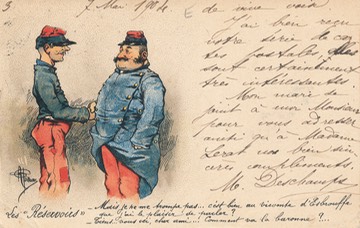 3
7 Mai 1904
de ma voix
J'ai bien reçu
votre série de car
tes postales elles
sont certainement
très intéressantes.
Mon mari se
joint à moi Monsieur
pour vous adresser
ainsi qu'à Madame
Lerat nos bien sin
cères compliments.
M. Deschamps
Les "Réservoirs"
- Mais je ne me trompe pas... c'est bien au vicomte d'Esbrouffe
que j'ai le plaisir de parler?
- Tiens! vous ici, cher ami... Comment va la baronne?...